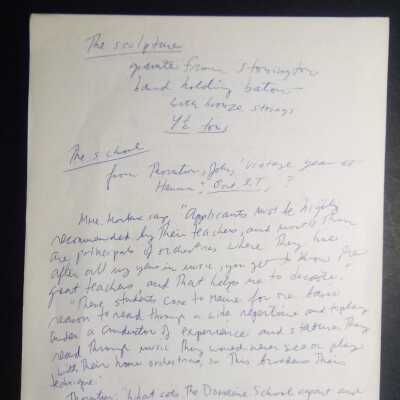 The sculpture
granite from Stonington
hand holding baton
with bronze strings
The school
from Thornton, John, "vintage year at
Hancock",
Mme. Monteux says, "Applicants must be highly
recommended by their teachers, and most of them
are principals of orchestras where they have
after all my years in music, you get to know the
great teachers, and that helps me to decide."
"These students come to Hancock for one basic
reason to read through a wide repertoire and to play
under a conductor of experience and stature. They
read through music they would never see or play
with their home orchestras, so this broadens their
technique."
Thornton: "What sets the Domaine School apart and